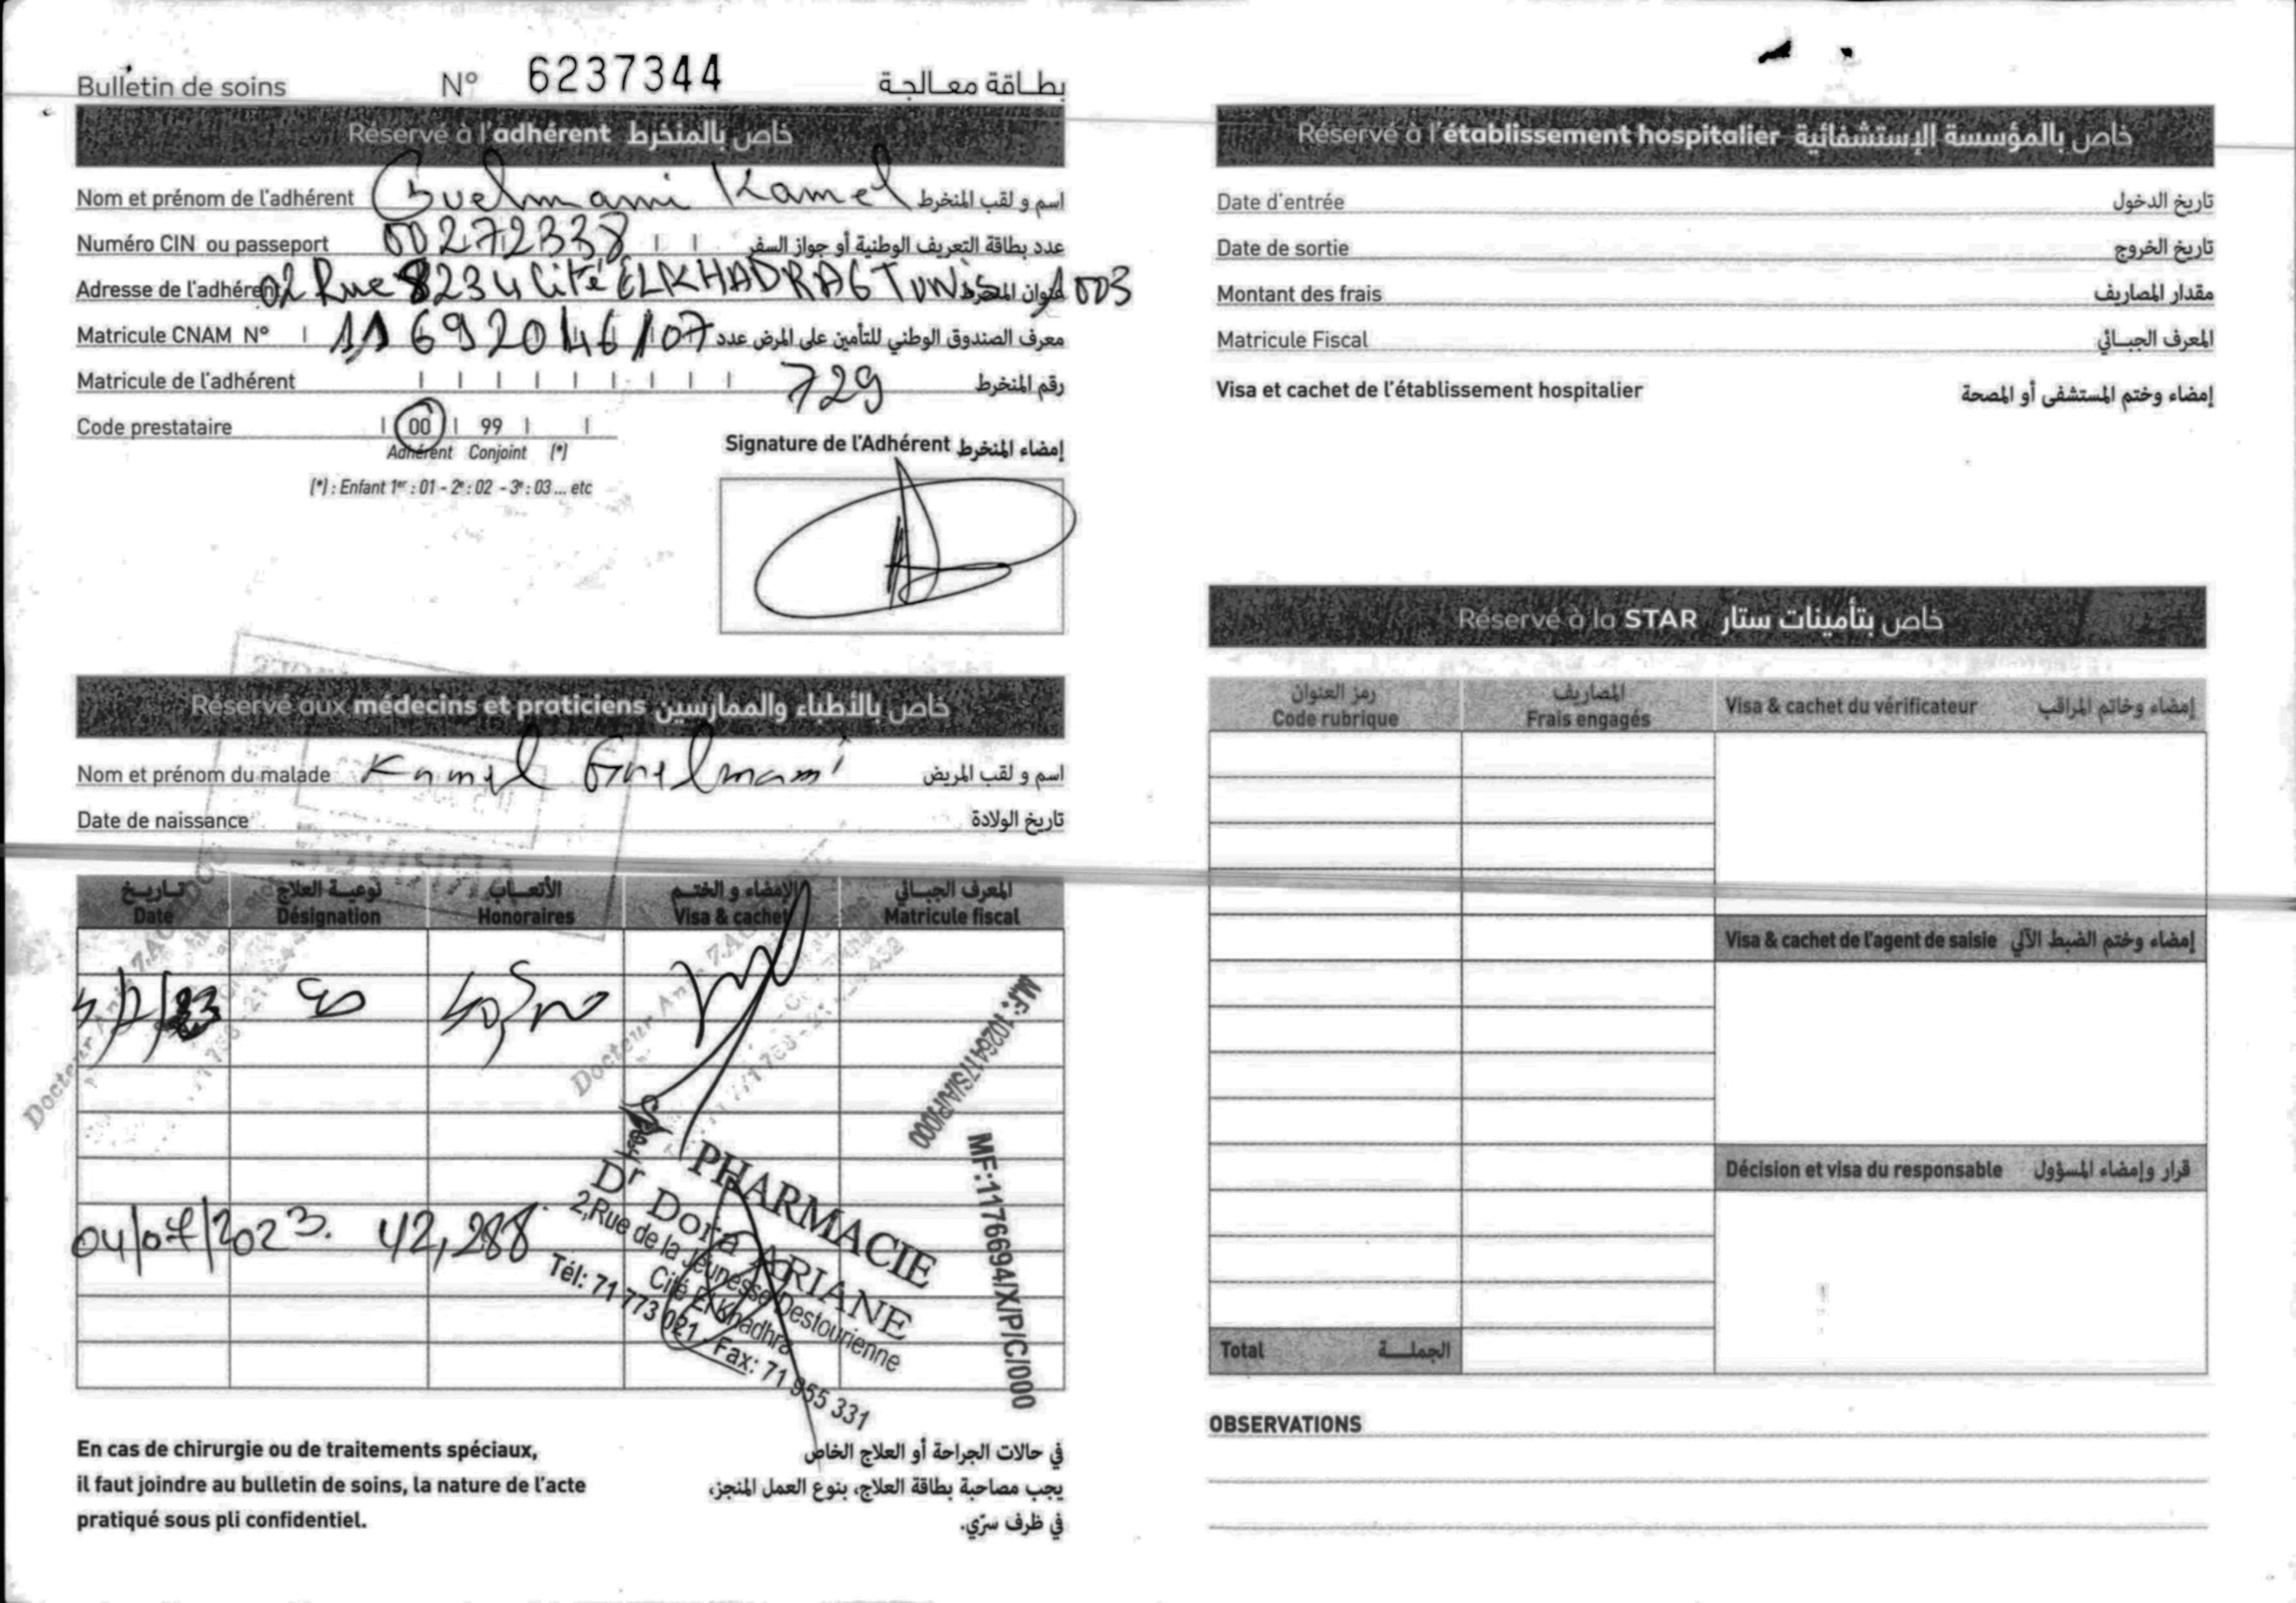 Bulletin de soins N° 6237344 بطاقة معالجة
Réservé à l'adhérent خاص بالمنخرط
Nom et prénom de l'adhérent Guelmami Kamel اسم و لقب المنخرط
Numéro CIN ou passeport 00272338 عدد بطاقة التعريف الوطنية أو جواز السفر
Adresse de l'adhérent 02 Rue 8234 Cité ELKHADRA TUNIS 1003 عنوان المنخرط
Matricule CNAM N° 11692046/07 معرف الصندوق الوطني للتأمين على المرض عدد
Matricule de l'adhérent 729 رقم المنخرط
Code prestataire 00 99
Adhérent Conjoint (*)
(*) : Enfant 1er : 01 - 2e : 02 - 3e : 03 ... etc
Signature de l'Adhérent إمضاء المنخرط
Réservé aux médecins et praticiens خاص بالأطباء والممارسين
Nom et prénom du malade Kamel Guelmami اسم و لقب المريض
Date de naissance تاريخ الولادة
تاريخ نوعية العلاج الأتعاب الإمضاء و الختم المعرف الجبائي
Date Désignation Honoraires Visa & cachet Matricule fiscal
Docteur
MF: 1026417S/A/P/000
04/07/2023. 42,288
PHARMACIE
Dr Dora ARIANE
2,Rue de la Jeunesse Destourienne
Cité El Khadhra
Tél: 71 773 021 - Fax: 71 955 331
MF:1176694/X/P/C/000
En cas de chirurgie ou de traitements spéciaux,
il faut joindre au bulletin de soins, la nature de l'acte
pratiqué sous pli confidentiel.
في حالات الجراحة أو العلاج الخاص
يجب مصاحبة بطاقة العلاج، بنوع العمل المنجز،
في ظرف سرّي.
Réservé à l'établissement hospitalier خاص بالمؤسسة الإستشفائية
Date d'entrée تاريخ الدخول
Date de sortie تاريخ الخروج
Montant des frais مقدار المصاريف
Matricule Fiscal المعرف الجبائي
Visa et cachet de l'établissement hospitalier إمضاء وختم المستشفى أو المصحة
Réservé à la STAR خاص بتأمينات ستار
رمز العنوان المصاريف
Code rubrique Frais engagés Visa & cachet du vérificateur إمضاء وخاتم المراقب
Visa & cachet de l'agent de saisie إمضاء وختم الضبط الآلي
Décision et visa du responsable قرار وإمضاء المسؤول
Total الجملة
OBSERVATIONS